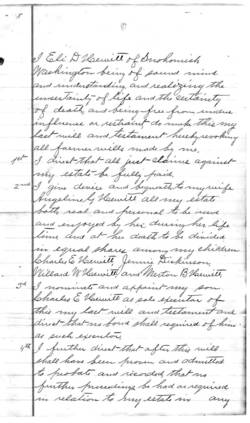 I Eli D Hewitt of Snohomish
Washington being of sound mind
and understanding and realizing the
uncertainty of life and the certainty
of death and being free from undue
influence or restraint do make this my
last will and testament hereby revoking
all former wills made by me.
1st I direct that all just claims against
my estate be fully paid.
2nd I give devise and bequeath to my wife
Angeline G Hewitt all my estate
both real and personal to be used
and enjoyed by her during her life
time and at her death to be divided
in equal share among my children
Charles E Hewitt Jennie Dickinson,
Willard W Hewitt and Merton B Hewitt.
3d I nominate and appoint my son
Charles E Hewitt as sole executor of
this my last will and testament and
direct that no bond shall required of him
as such executor.
4th I further direct that after this will
shall have been proven and admitted
to probate and recorded that no
further proceedings be had or required
in relation to my estate in any